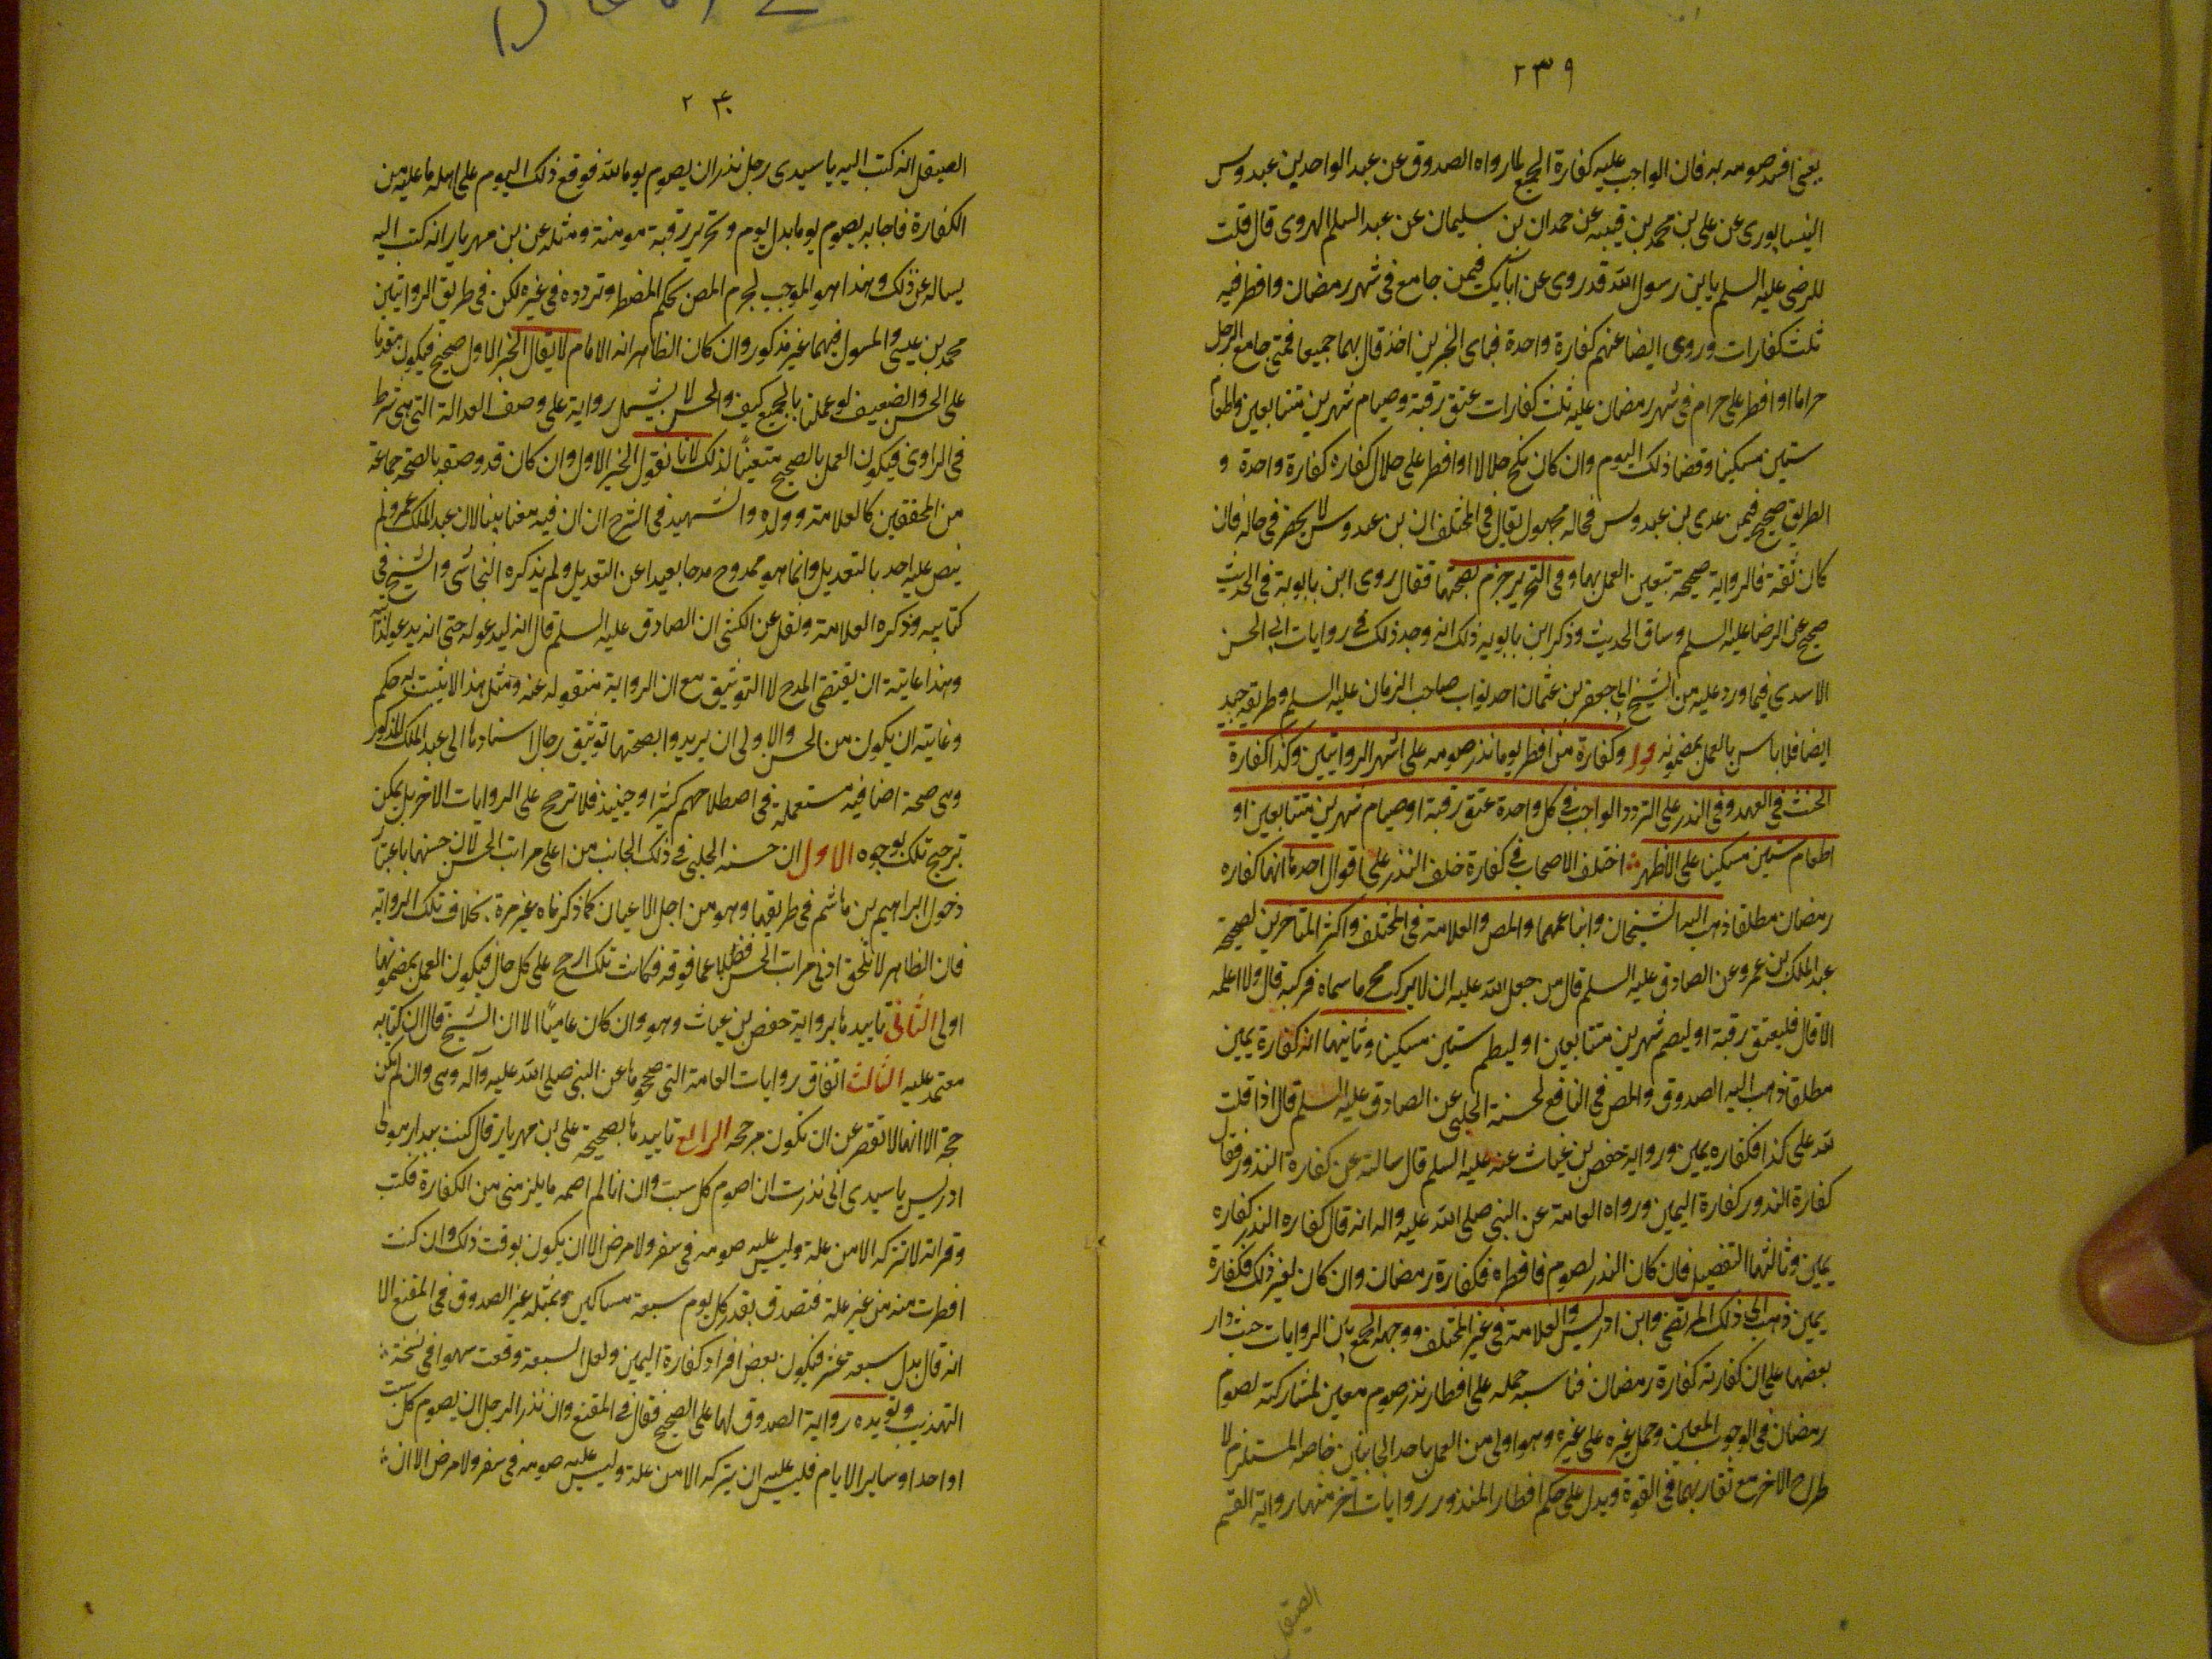 ٢٣٩
يعنى افسد صومه به فان الواجب عليه كفارة الجمع لما رواه الصدوق عن عبد الواحد بن عبدوس
النيسابورى عن على بن محمد بن قتيبه عن حمدان بن سليمان عن عبد السلم الهروى قال قلت
للرضى عليه السلم يا بن رسول الله قد روى عن ابآيك فيمن جامع فى شهر رمضان وافطر فيه
ثلث كفارات وروى ايضا عنهم كفارة واحدة فباى الخبرين اخذ قال بهما جميعا فمتى جامع الرجل
حراما او افطر على حرام فى شهر رمضان عليه ثلث كفارات عتق رقبة وصيام شهرين متتابعين واطعام
ستين مسكينا وقضا ذلك اليوم وان كان نكح حلالا او افطر على حلال كفاره كفارة واحدة و
الطريق صحيح فيمن عدى بن عبدوس فحاله مجهول يقال فى المختلف ان بن عبدوس لا يحضر فى حاله فان
كان ثقة فالرواية صحيحة تتعين العمل بها وفى التحرير جزم بصحتها فقال روى ابن بابوية فى الحديث
صحيح عن الرضا عليه السلم وساق الحديث وذكر ابن بابويه ذلك انه وجد ذلك فى روايات ابى الحسن
الاسدي فيما ورد عليه من الشيخ ابى جعفر بن عثمان احد نواب صاحب الزمان عليه السلم وطريقه جيد
ايضا فلا باس بالعمل بمضمونه وكفارة من افطر يوما نذر صومه على اشهر الروايتين وكذا كفارة
الحنث فى العهد وفى النذر على التردد الواجب فى كل واحدة عتق رقبة او صيام شهرين متتابعين او
اطعام ستين مسكينا على الاظهر اختلف الاصحاب فى كفارة خلف النذر على اقوال احدها انها كفاره
رمضان مطلقا ذهب اليه الشيخان واتباعهما والمص والعلامة فى المختلف واكثر المتاخرين لصحيحة
عبد الملك بن عمرو عن الصادق عليه السلم قال من جعل الله عليه ان لا يركب محرما سماه فركبه قال ولا اعلمه
الا قال فليعتق رقبة او ليصم شهرين متتابعين او ليطعم ستين مسكينا وثانيها انه كفارة يمين
مطلقا ذهب اليه الصدوق والمص فى النافع لحسنة الحلبى عن الصادق عليه السلم قال اذا قلت
لله على كذا فكفاره يمين ورواية حفص بن غياث عنه عليه السلم قال سالته عن كفارة النذور فقال
كفارة النذور كفارة اليمين ورواه العامة عن النبى صلى الله عليه واله انه قال كفاره النذر كفاره
يمين وثالثها التفصيل فان كان النذر لصوم فافطره فكفارة رمضان وان كان لغير ذلك فكفارة
يمين ذهب الى ذلك المرتضى وابن ادريس والعلامة فى غير المختلف ووجهه الجمع بين الروايات حيث دار
بعضها على ان كفارته كفارة رمضان فناسبه حمله على افطار نذر صوم معين لمشاركته لصوم
رمضان فى الوجوب المعين وحمل غيره على غيره وهو اولى من العمل باحد الجانبين خاصه المستلزم لا
طراح الاخر مع تقاربهما فى القوة ويدل على حكم افطار المنذور روايات اخر منها رواية القسم
الصيقل
٢٤٠
الصيقل انه كتب اليه يا سيدى رجل نذر ان يصوم يوما لله فوقع ذلك اليوم على اهله ما عليه من
الكفارة فاجابه يصوم يوما بدل يوم وتحرير رقبة مومنة ومثله عن بن مهريار انه كتب اليه
يساله عن ذلك وهذا هو الموجب لجزم المص بحكم المفطر وتردده فى غيره لكن فى طريق الروايتين
محمد بن عيسى والمسول فيهما غير مذكور وان كان الظاهر انه الامام لا يقال الخبر الاول صحيح فيكون مقدما
على الحسن والضعيف لو عملنا بالجميع كيف والحسن لا يشمل رواية على وصف العدالة التى هى شرط
فى الراوى فيكون العمل بالصحيح متعينا لذلك لانا نقول الخبر الاول وان كان قد وصفه بالصحة جماعة
من المحققين كالعلامة وولده والشهيد فى الشرح ان فيه منعا بينا لان عبد الملك بن عمرو لم
ينص عليه احد بالتعديل وانما هو ممدوح مدحا بعيدا عن التعديل ولم يذكره النجاشى والشيخ فى
كتابيه وذكره العلامة ونقل عن الكشى ان الصادق عليه السلم قال انه ليدعو له حتى انه يدعو لدابته
وهذا غايتة ان يقتضى المدح لا التوثيق مع ان الرواية منقوله عنه ومثل هذا لا يثبت به حكم
وغايته ان يكون من الحسن والاولى ان يريدوا بصحتها توثيق رجال اسنادها الى عبد الملك المذكور
وهى صحة اضافيه مستعملة فى اصطلاحهم كثيرا وحينيذ فلا ترجح على الروايات الاخر بل يمكن
ترجيح تلك بوجوه الاول ان حسنه الحلبى فى ذلك الجانب من اعلى مراتب الحسن لان حسنها باعتبار
دخول ابراهيم بن هاشم فى طريقها وهو من اجل الاعيان كما ذكرناه غير مرة بخلاف تلك الرواية
فان الظاهر لا تلحق ادنى مراتب الحسن فضلا عما فوقه فكانت تلك ارجح على كل حال فيكون العمل بمضمونها
اولى الثانى تاييدها برواية حفص بن غياث وهو وان كان عاميا الا ان الشيخ قال ان كتابه
معتمد عليه الثالث اتفاق روايات العامة التى صححوها عن النبى صلى الله عليه وآله وهى وان لم تكن
حجة الا انها لا تقصر عن ان تكون مرجحه الرابع تاييدها بصحيحة على بن مهريار قال كتب بندار مولى
ادريس يا سيدى انى نذرت ان اصوم كل سبت وان انا لم اصمه ما يلزمنى من الكفارة فكتب
وقراته لا تتركه الا من علة وليس عليه صومه فى سفر ولا مرض الا ان يكون نويت ذلك وان كنت
افطرت منه من غير علة فتصدق بقدر كل يوم سبعة مساكين وبمثله عبر الصدوق فى المقنع الا
انه قال بدل سبعة عشر فيكون بعض افراد كفارة اليمين ولعل السبعة وقعت سهوا فى نسخة
التهذيب ويويده رواية الصدوق لها على الصحيح فقال فى المقنع وان نذر الرجل ان يصوم كل سبت
او احد او ساير الايام فليس عليه ان يتركه الا من علة وليس عليه صومه فى سفر ولا مرض الا ان